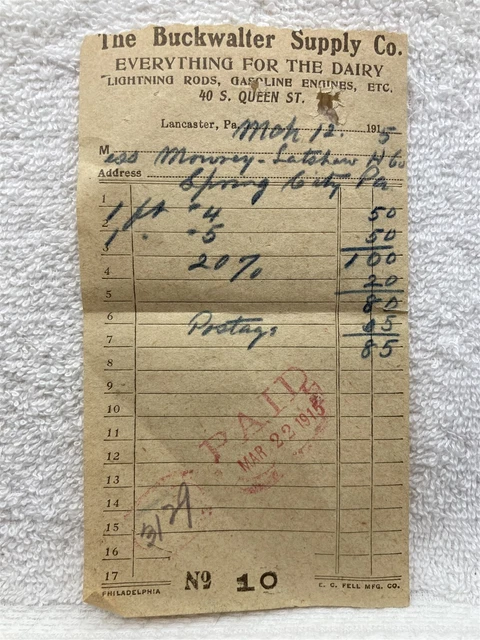 The Buckwalter Supply Co.
EVERYTHING FOR THE DAIRY
LIGHTNING RODS, GASOLINE ENGINES, ETC.
40 S. QUEEN ST.
Lancaster, Pa. Mch 12. 1915
Mess Mowrey-Latshaw H Co
Address Spring City Pa
1
2 1 pt #4 50
3 1 " #5 50
4 20% 1 00
5 20
6 80
7 Postage 05
8 85
9
10
11
12
13
14
15
16
17
PAID
MAR 22 1915
3129
No 10
PHILADELPHIA
E. C. FELL MFG. CO.